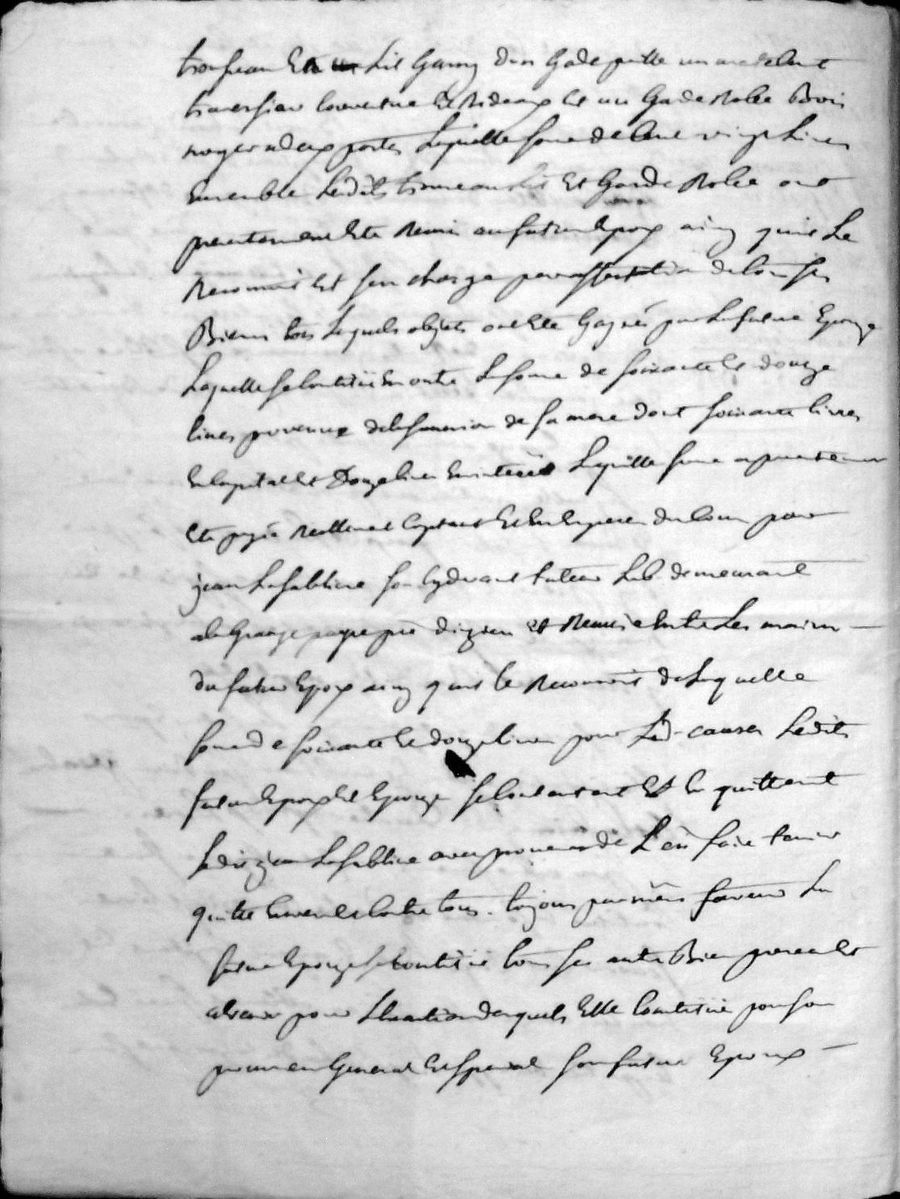 trousseau Et un Lit Garny d'un Gadepaille un matelat
traversier Couverture Et Rideaux Et un Gaderobe Bois
noyer a deux portes Laquelle some de Cent vingt Livres
Ensemble Lesdits trousseau Lit Et Garde Robe ont
presentement Eté Remis au futur Epoux ainsy quil Le
Reconnoit Et sen charge par affectation de tous ses
Biens tous Lequels objets ont Eté Gagnés par La future Epouze
Laquelle se Constitue En outre La some de soixante Et douze
livres provenus de la succession de sa mere dont soixante livres
En Capital Et Douze livres En interets Laquelle some a presentement
Eté payée Reellement Comptant Et En Especes du Cours par
jean Lasabliere son Cydevant tuteur Lab. demeurant
a la Grange paroisse près Et Remise Entre Les mains
du futur Epoux ainsy quil le Reconnoit de Laquelle
some de soixante Et douze livres pour Lesd. causes Lesdits
futur Epoux Et Epouze se Contentent Et En quittent
Ledit jean Lasabliere avec promesse de L'en faire tenir
quitte Envers Et Contre tous. toujours par mêm faveur La
future Epouze se Constitue tous ses autres Biens presents Et
a venir pour L'exaction desquels Elle Constitue pour son
procureur General Et special son futur Epoux